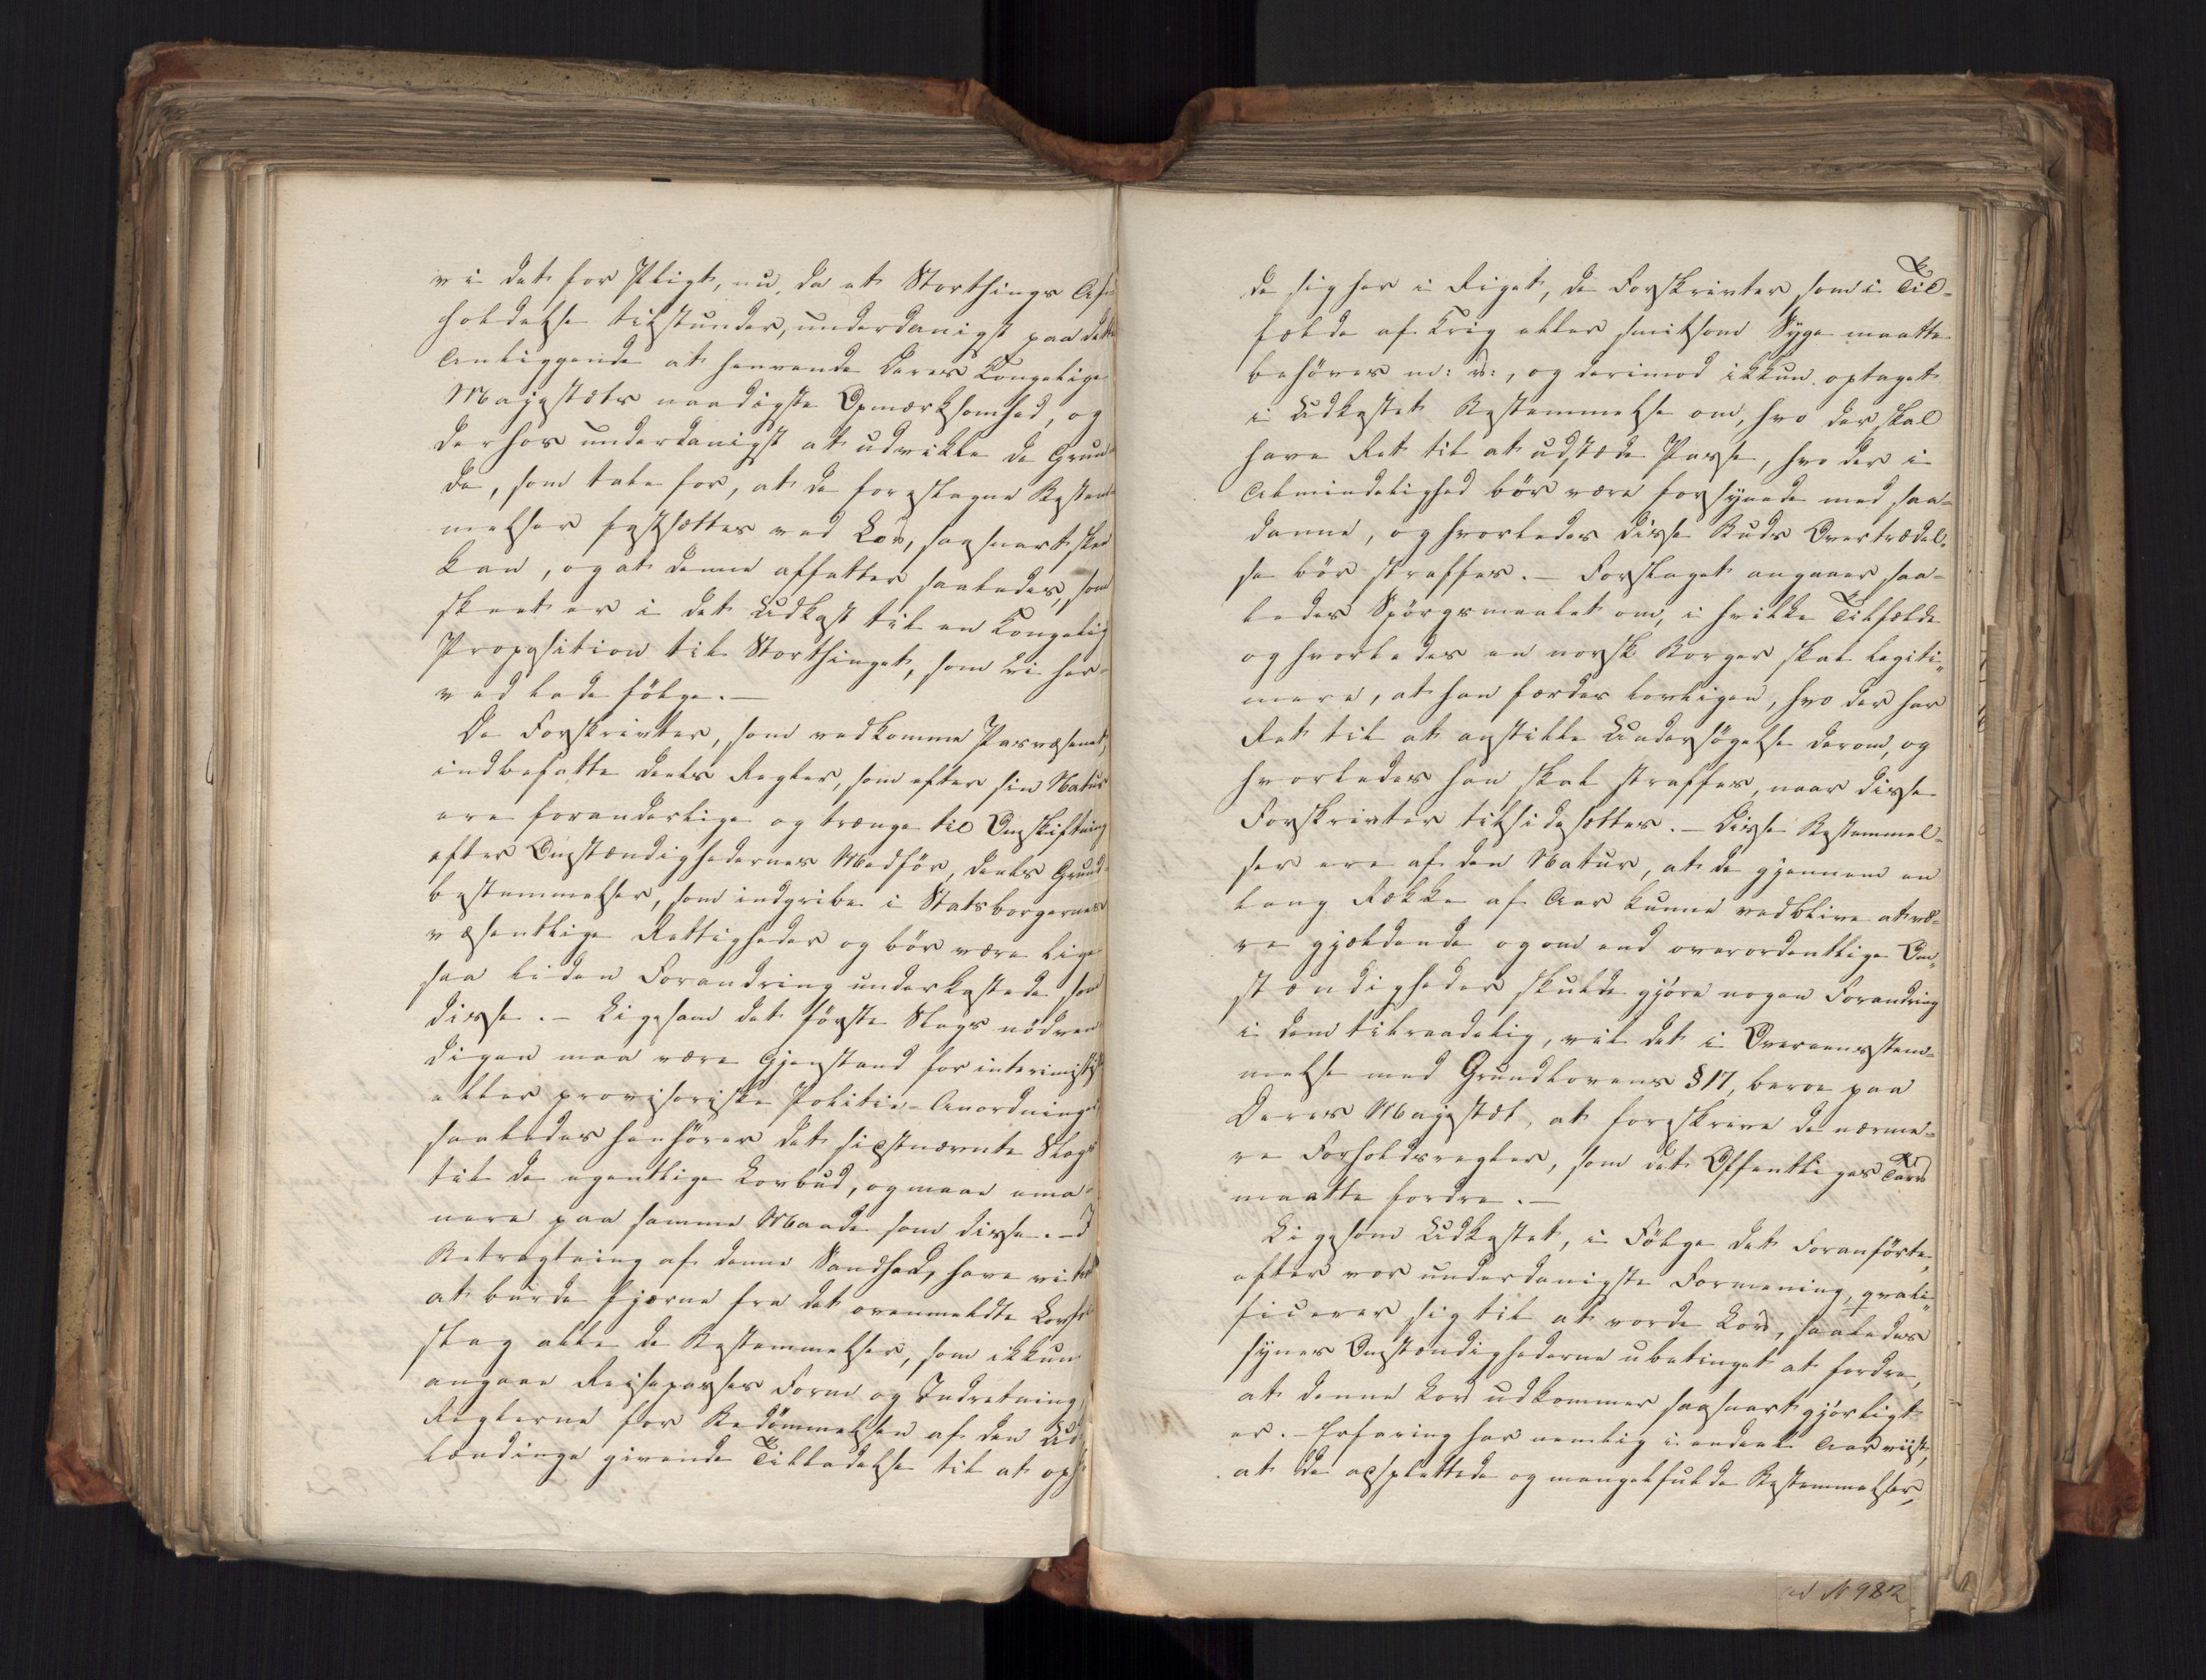 vi det for Pligt, nu, da et Storthings Af-
holdelse tilstunder, underdanigst paa dette
Anliggende at henvende Deres Kongelige
Majestæts naadigste Opmærksomhed, og
derhos underdanigst at udvikle de Grun-
de, som tale for, at de foreslagne Bestem-
melser fastsættes ved Lov, saasnart skee
kan, og at denne affattes saaledes, som
skeet er i det Udkast til en Kongelig
Proposition til Storthinget, som vi her-
ved lade følge. —
De Forskrivter, som vedkomme Pasvæsenet,
indbefatte deels Regler, som efter sin Natur
ere foranderlige og trænge til Omskiftning
efter Omstændighedernes Medfør, deels Grund-
bestemmelser, som indgribe i Statsborgernes
væsentlige Rettigheder og bør være lige
saa liden Forandring underkastede som
disse. — Ligesom det første Slags nødven-
digen maa være Gjenstand for interimistisk
eller provisoriske Politie-Anordninger
saaledes henhører det sidstnævnte Slags
til de egentlige Lovbud, og maae ema-
nere paa samme Maade som disse. — I
Betragtning af denne Sandhed, have vi troet
at burde fjerne fra det ovenmeldte Lovfor-
slag alle de Bestemmelser, som ikkun
angaae Reisepassers Form og Indretning,
Reglerne for Bedømmelsen af den Ud-
lændinge givende Tilladelse til at ophol-
de sig her i Riget, de Forskrivter som i Til-
fælde af Krig eller smitsom Syge maatte
behøves m: v:, og derimod ikkun optaget
i Udkastet Bestemmelse om, hvo der skal
have Ret til at udstæde Passe, hvo der i
Almindelighed bør være forsynede med saa-
danne, og hvorledes disse Buds Overtrædel-
se bør straffes. — Forslaget angaaer saa-
ledes Spørgsmaalet om, i hvilke Tilfælde
og hvorledes en norsk Borger skal legiti-
mere, at han færdes lovligen, hvo der har
Ret til at anstille Undersøgelse derom, og
hvorledes han skal straffes, naar disse
Forskrivter tilsidesættes. — Disse Bestemmel-
ser ere af den Natur, at de gjennem en
lang Række af Aar kunne vedblive at væ-
re gjeldende og om end overordentlige Om-
stændigheder skulde gjøre nogen Forandring
i dem tilraadelig, vil det i Overeensstem-
melse med Grundlovens § 17, beroe paa
Deres Majestæt, at foreskrive de nærme-
re Forholdsregler, som det Offentliges Tarv
maatte fordre. —
Ligesom Udkastet, i Følge det Foranførte,
efter vor underdanigste Formening, qvali-
ficerer sig til at vorde Lov, saaledes
synes Omstændighederne ubetinget at fordre,
at denne Lov udkommer saasnart gjørligt
er. — Erfaring har nemlig i endeel Aar viist,
at de adsplittede og mangelfulde Bestemmelser,
ad N 982